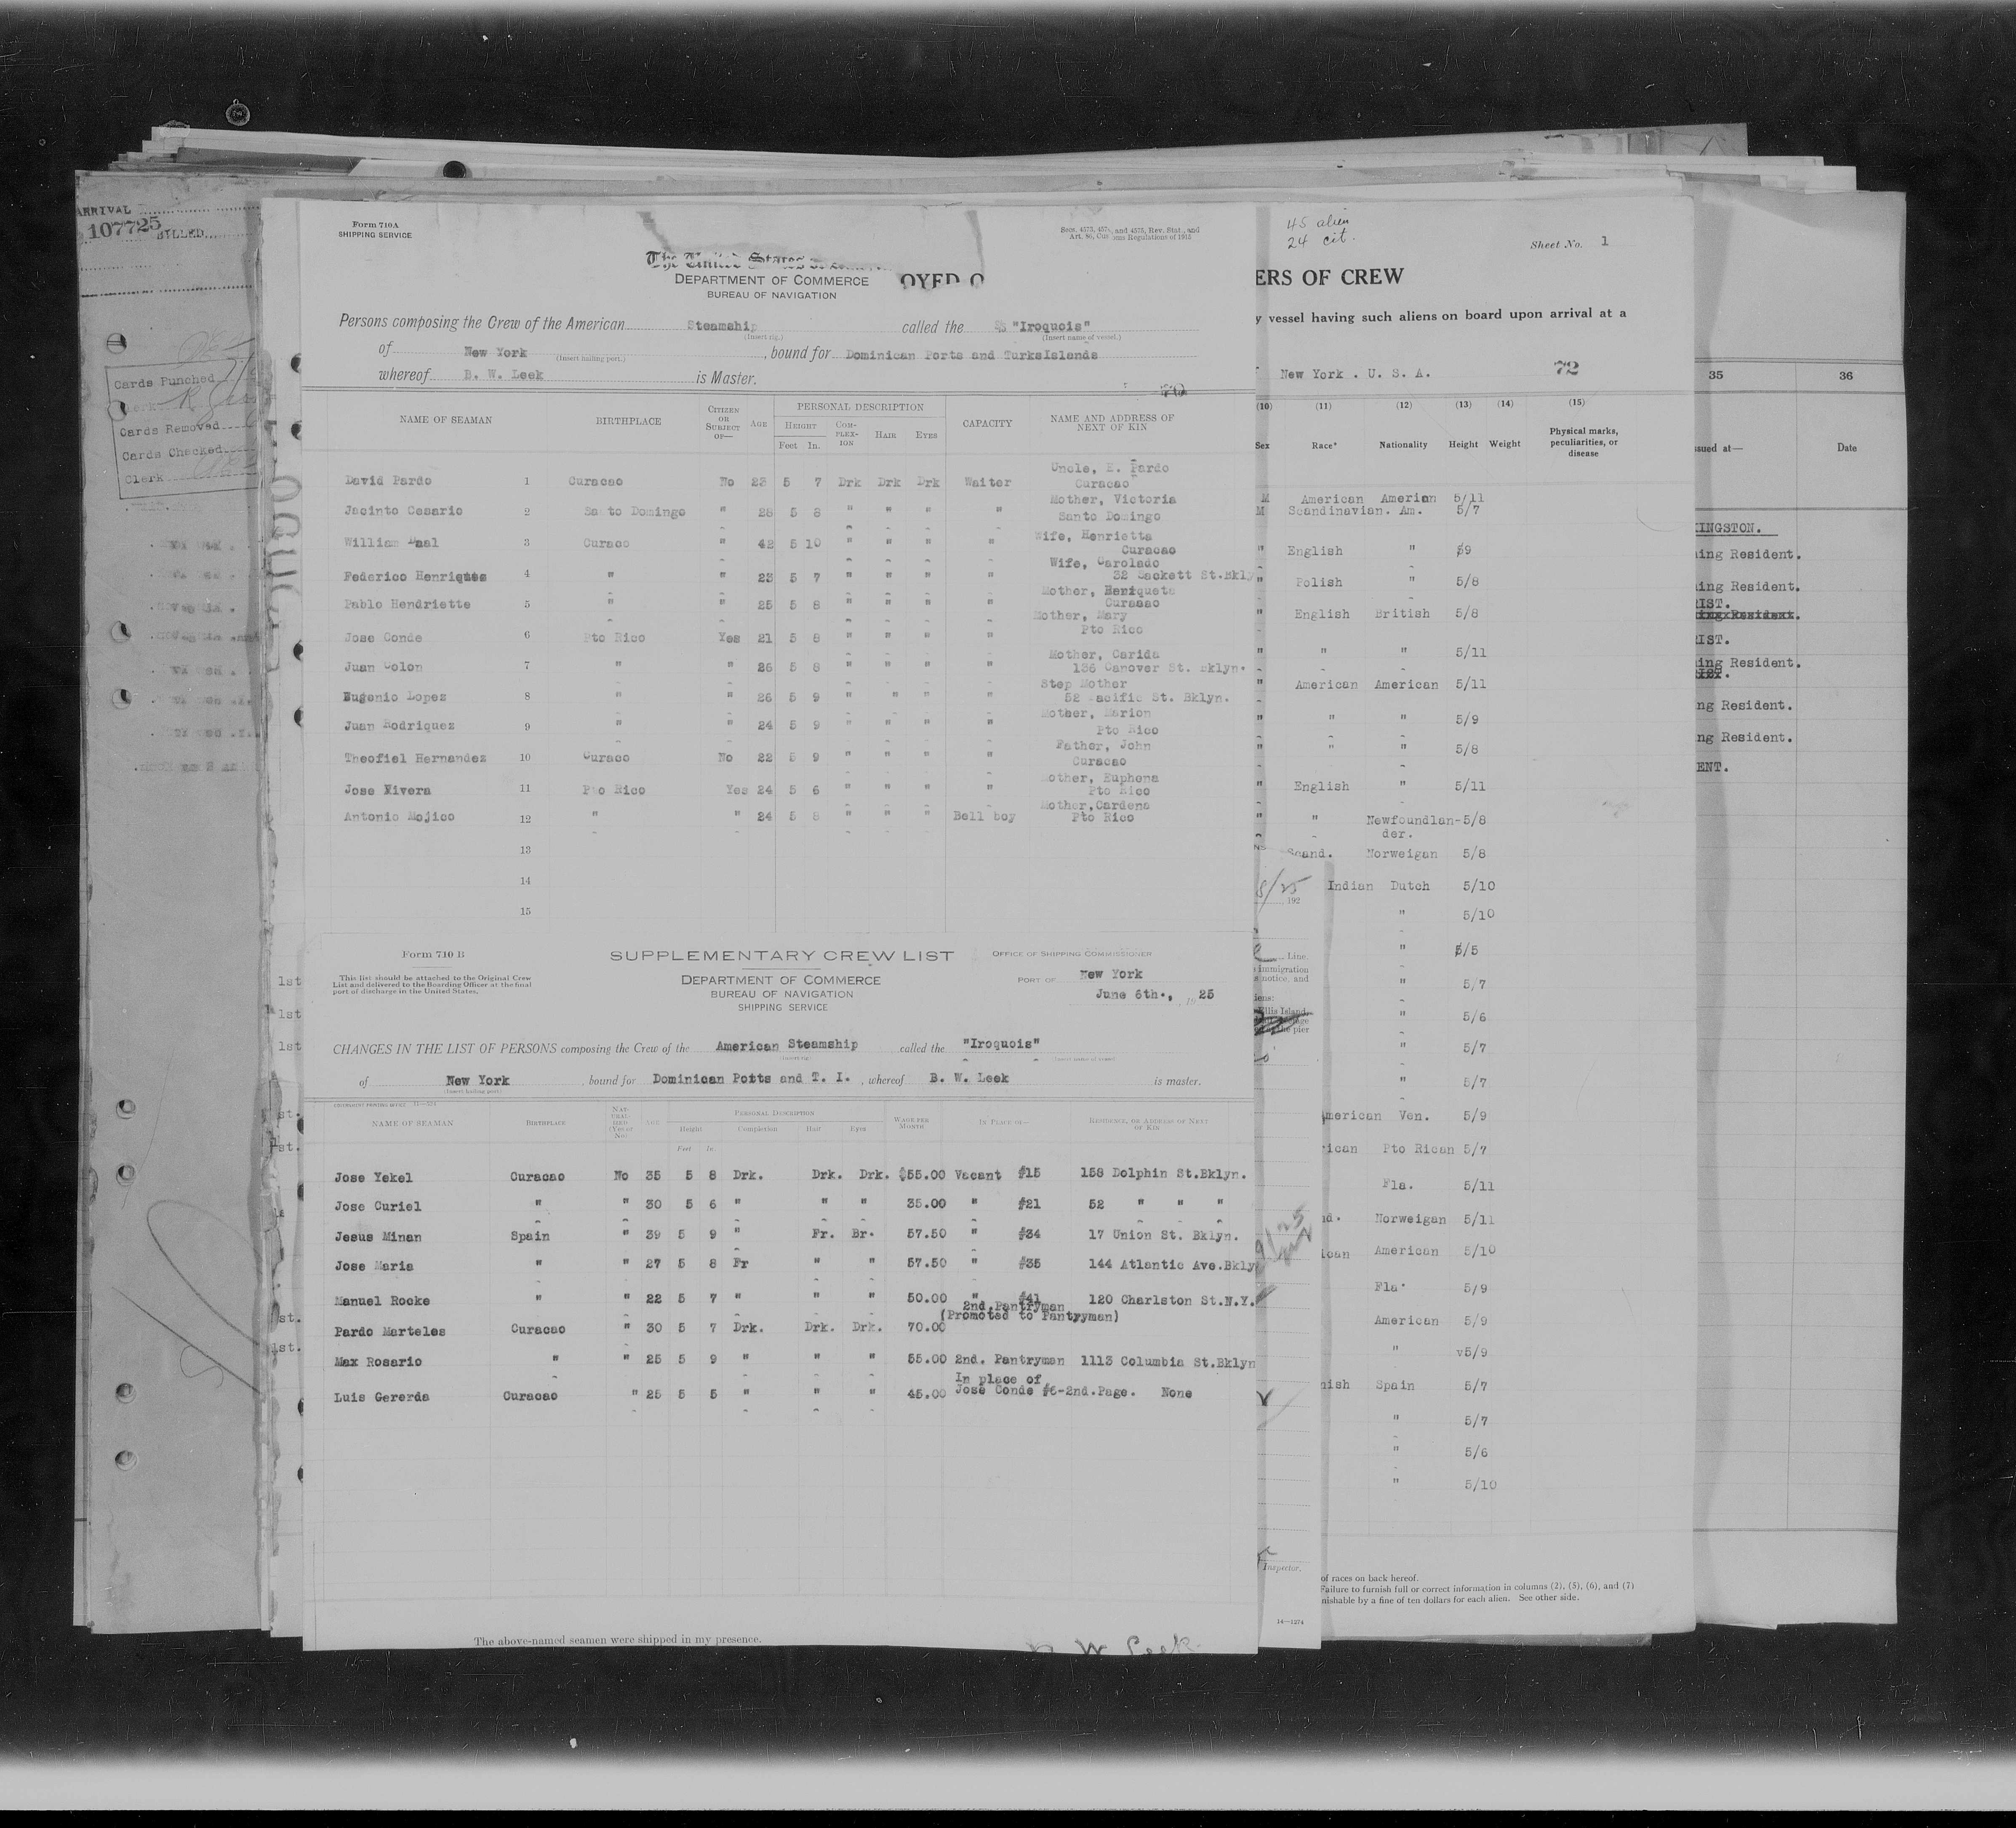 ARRIVAL
107725
BILLED
Cards Punched
Cards Removed
Cards Checked
Clerk
Form 710A
SHIPPING SERVICE
Secs. 4573, 4574, and 4575, Rev. Stat., and
The United States
DEPARTMENT OF COMMERCE
OYED O
BUREAU OF NAVIGATION
Persons composing the Crew of the American Steamship called the "Iroquois"
(Insert rig.) (Insert name of vessel.)
of New York , bound for Dominican Ports and TurksIslands
(Insert hailing port.)
whereof B. W. Leek is Master.
NAME OF SEAMAN BIRTHPLACE CITIZEN OR SUBJECT OF— AGE PERSONAL DESCRIPTION CAPACITY NAME AND ADDRESS OF NEXT OF KIN
HEIGHT COM-PLEX-ION HAIR EYES
Feet In.
Uncle, E. Pardo
David Pardo 1 Curacao No 23 5 7 Drk Drk Drk Waiter Curacao
Mother, Victoria
Jacinto Cesario 2 Santo Domingo " 28 5 8 " " " " Santo Domingo
Wife, Henrietta
William Maal 3 Curaco " 42 5 10 " " " " Curacao
Wife, Carolado
Federico Henriques 4 " " 23 5 7 " " " " 32 Sackett St.Bkly
Mother, Henriquets
Pablo Hendriette 5 " " 25 5 8 " " " " Curacao
Mother, Mary
Jose Conde 6 Pto Rico Yes 21 5 8 " " " " Pto Rico
Mother, Carida
Juan Colon 7 " " 26 5 8 " " " " 136 Canover St. Bklyn.
Step Mother
Eugenio Lopez 8 " " 26 5 9 " " " " 52 Pacific St. Bklyn.
Mother, Marion
Juan Rodriquez 9 " " 24 5 9 " " " " Pto Rico
Father, John
Theofiel Hernandez 10 Curaco No 22 5 9 " " " " Curacao
Mother, Euphena
Jose Rivera 11 Pto Rico Yes 24 5 6 " " " " Pto Rico
Mother,Cardena
Antonio Mojico 12 " " 24 5 8 " " " Bell boy Pto Rico
13
14
15
Form 710 B
This list should be attached to the Original Crew
List and delivered to the Boarding Officer at the final
port of discharge in the United States.
SUPPLEMENTARY CREW LIST
DEPARTMENT OF COMMERCE
BUREAU OF NAVIGATION
SHIPPING SERVICE
OFFICE OF SHIPPING COMMISSIONER
PORT OF New York
June 6th., 1925
CHANGES IN THE LIST OF PERSONS composing the Crew of the American Steamship called the "Iroquois"
of New York , bound for Dominican Potts and T. I. , whereof B. W. Leek is master.
(Insert hailing port)
NAME OF SEAMAN BIRTHPLACE NAT-URAL-IZED (Yes or No) AGE PERSONAL DESCRIPTION WAGE PER MONTH IN PLACE OF— RESIDENCE, OR ADDRESS OF NEXT OF KIN
Height Complexion Hair Eyes
Feet In.
Jose Yekel Curacao No 35 5 8 Drk. Drk. Drk. $55.00 Vacant #15 158 Dolphin St.Bklyn.
Jose Curiel " " 30 5 6 " " " 35.00 " #21 52 " " "
Jesus Minan Spain " 39 5 9 " Fr. Br. 57.50 " #34 17 Union St. Bklyn.
Jose Maria " " 27 5 8 Fr " " 57.50 " #35 144 Atlantic Ave.Bkly
Manuel Rocke " " 22 5 7 " " " 50.00 " #41 120 Charlston St.N.Y.
2nd.Pantryman
(Promoted to Pantryman)
Pardo Marteles Curacao " 30 5 7 Drk. Drk. Drk. 70.00
Max Rosario " " 25 5 9 " " " 55.00 2nd. Pantryman 1113 Columbia St.Bklyn
In place of
Luis Gererda Curacao " 25 5 5 " " " 45.00 Jose Conde #6-2nd.Page. None
The above-named seamen were shipped in my presence.
B W Leek
45 alien
24 cit.
Sheet No. 1
ERS OF CREW
y vessel having such aliens on board upon arrival at a
New York . U. S. A. 72
(10) (11) (12) (13) (14) (15)
Sex Race* Nationality Height Weight Physical marks, peculiarities, or disease
M American Amerian 5/11
M Scandinavian. Am. 5/7
" English " 59
" Polish " 5/8
" English British 5/8
" " " 5/11
" American American 5/11
" " " 5/9
" " " 5/8
" English " 5/11
" " Newfoundlan-5/8
der.
Scand. Norweigan 5/8
Indian Dutch 5/10
" 5/10
" 5/5
" 5/7
" 5/6
" 5/7
" 5/7
merican Ven. 5/9
rican Pto Rican 5/7
Fla. 5/11
nd. Norweigan 5/11
ican American 5/10
Fla. 5/9
American 5/9
" v5/9
nish Spain 5/7
" 5/7
" 5/6
" 5/10
8/25
192
Line.
immigration
notice, and
iens:
Ellis Island.
the pier
Inspector.
14—1274
of races on back hereof.
Failure to furnish full or correct information in columns (2), (5), (6), and (7)
nishable by a fine of ten dollars for each alien. See other side.
35 36
ssued at— Date
INGSTON.
ing Resident.
ing Resident.
IST.
ing Resident.
IST.
ing Resident.
ng Resident.
ng Resident.
ENT.
1st
1st
1st
st.
st.
st.
st.